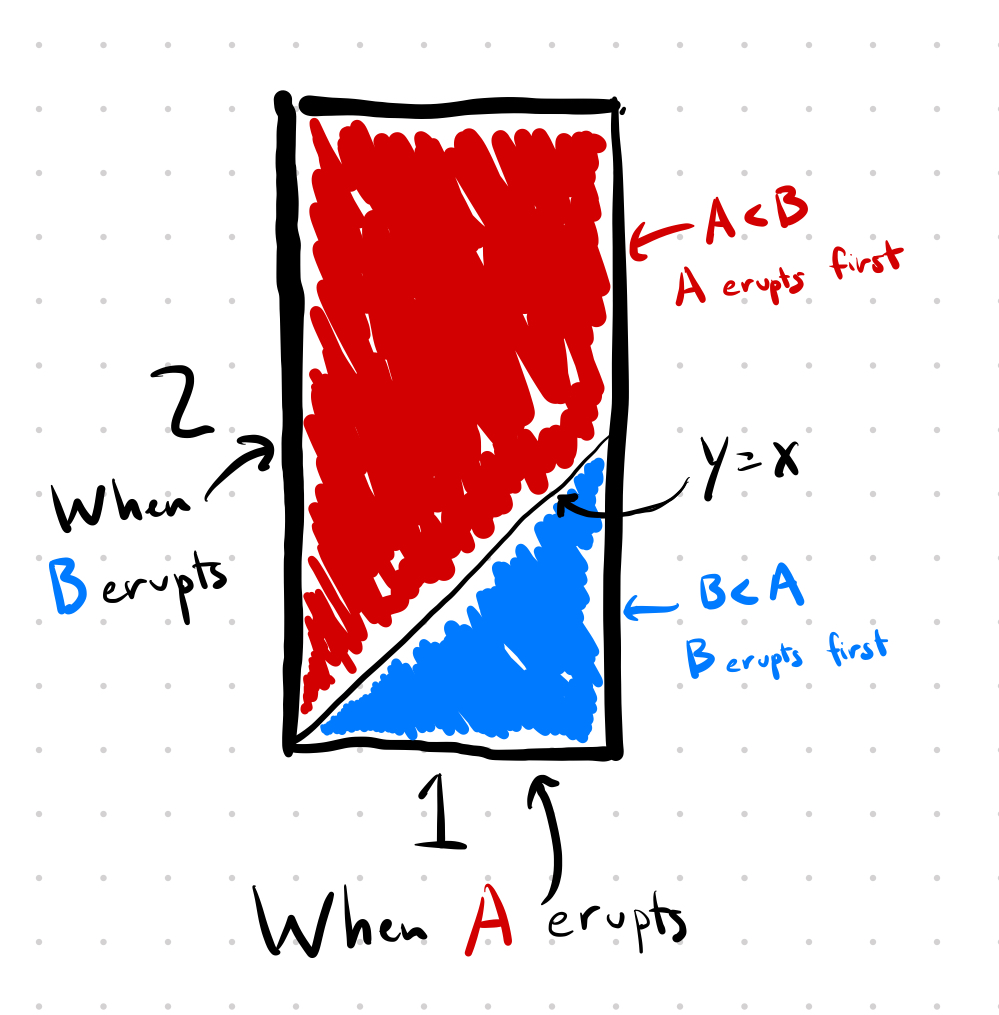 A < B
A erupts first
2
When
B erupts
y = x
B < A
B erupts first
1
When A erupts